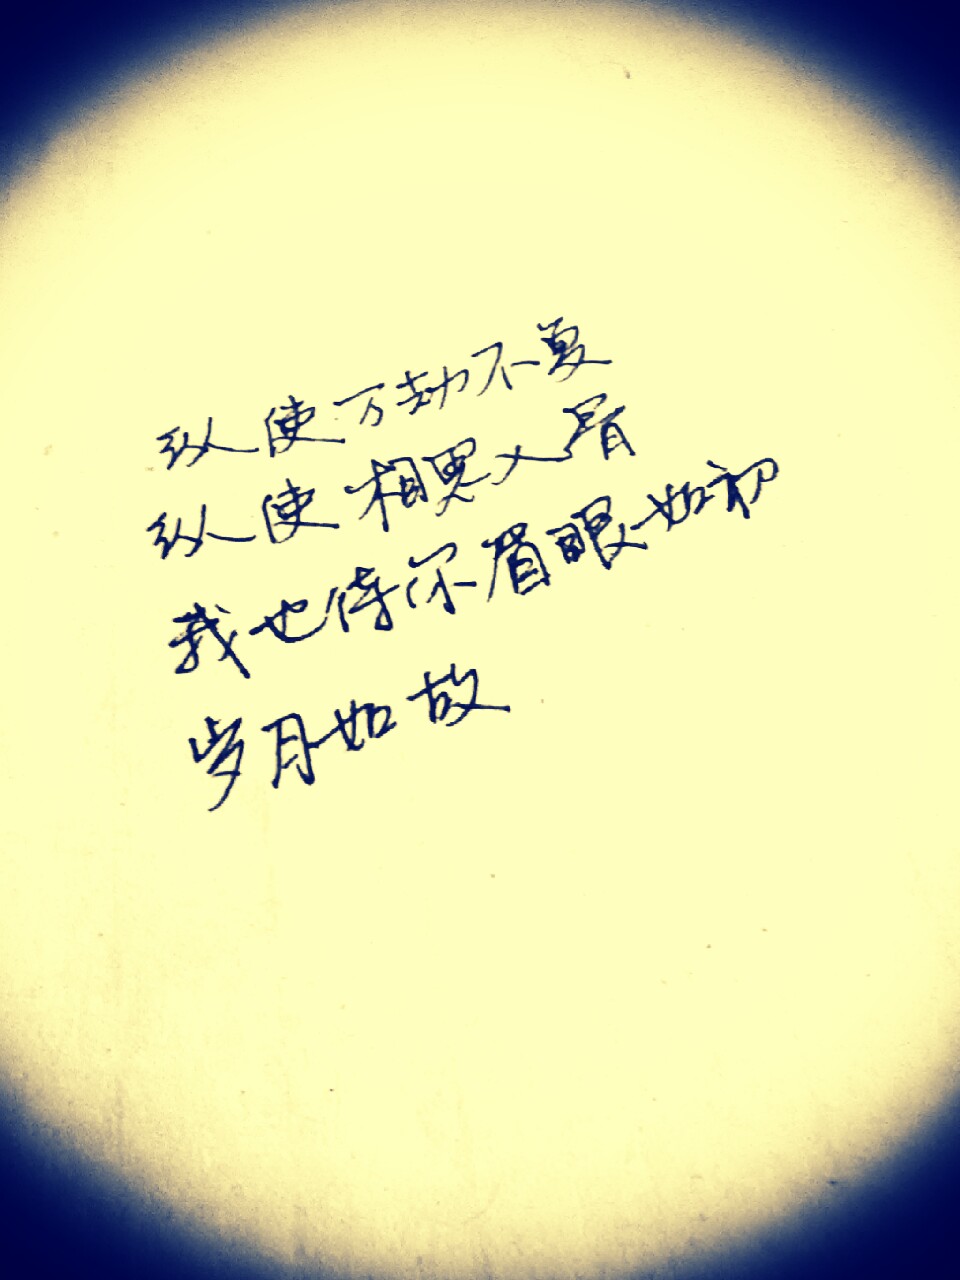 纵使万劫不复
纵使相思入骨
我也待你眉眼如初
岁月如故